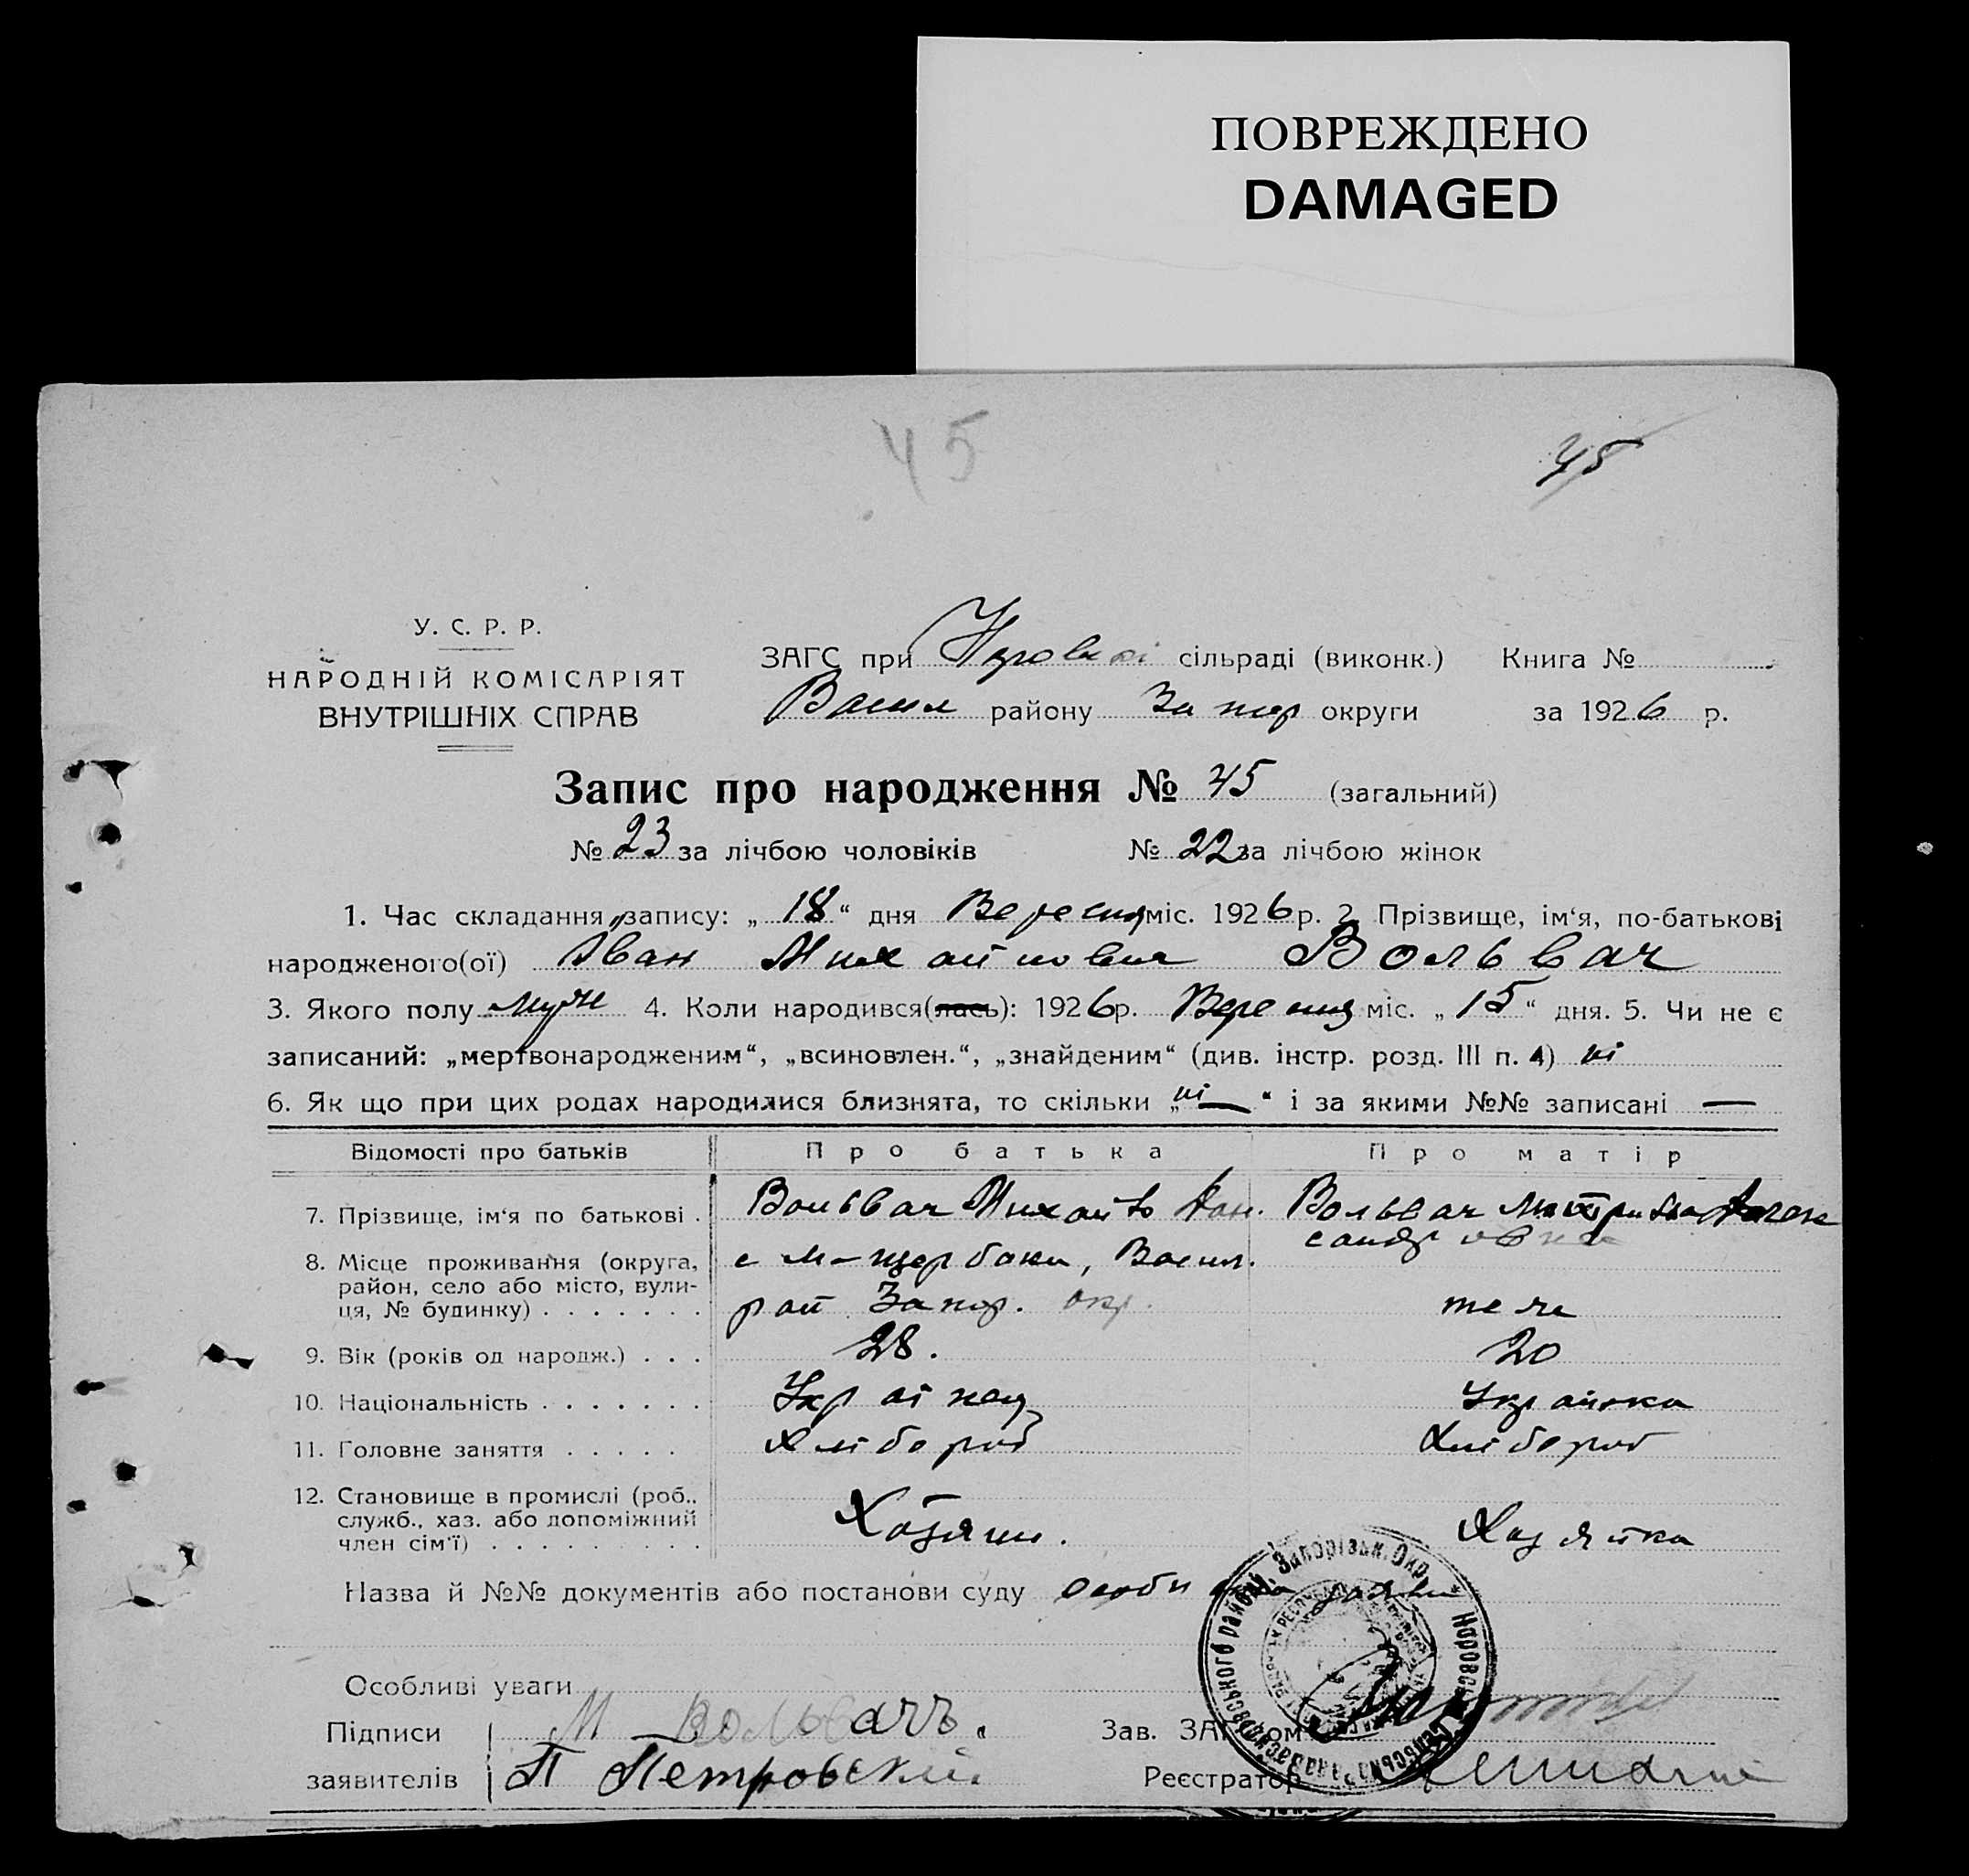 ПОВРЕЖДЕНО
DAMAGED
45
45
У. С. Р. Р.
НАРОДНІЙ КОМІСАРІЯТ
ВНУТРІШНІХ СПРАВ
ЗАГС при сільраді (виконк.) Книга №
Васил району Запор округи за 1926 р.
Запис про народження № 45 (загальний)
№ 23 за лічбою чоловіків № 22 за лічбою жінок
1. Час складання запису: „ 18 “ дня Вересня міс. 1926 р. 2. Прізвище, ім‘я, по-батькові
народженого(ої) Іван Михайлович Вольвач
3. Якого полу муж 4. Коли народився(лась): 1926 р. Вересня міс. „ 15 “ дня. 5. Чи не є
записаний: „мертвонародженим“, „всиновлен.“, „знайденим“ (див. інстр. розд. III п. 4) ні
6. Як що при цих родах народилися близнята, то скільки „ ні — “ і за якими №№ записані —
Відомості про батьків Про батька Про матір
7. Прізвище, ім‘я по батькові . Вольвач Михайло Вольвач Олек
сандровна
8. Місце проживання (округа,
район, село або місто, вули-
ця, № будинку) . . . . . . .
с М-Щербаки, Васил.
рай Запор. окр. теж
9. Вік (років од народж.) . . . 28. 20
10. Національність . . . . . . . Українец Українка
11. Головне заняття . . . . . Хлібороб Хлібороб
12. Становище в промислі (роб..
служб., хаз. або допоміжний
член сім‘ї) . . . . . . . . .
Хозяин. Хазяйка
Назва й №№ документів або постанови суду
Особливі уваги
Підписи М Вольвачъ.
заявителів П Петровский
Зав. ЗАГСом
Реєстратор